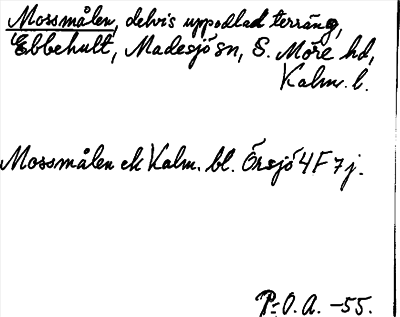 Mossmålen, delvis uppodlad terräng,
Ebbehult, Madesjö sn, S. Möre hd,
Kalm. l.
Mossmålen ek Kalm. bl. Örsjö 4F 7j.
P.-O.A. -55.